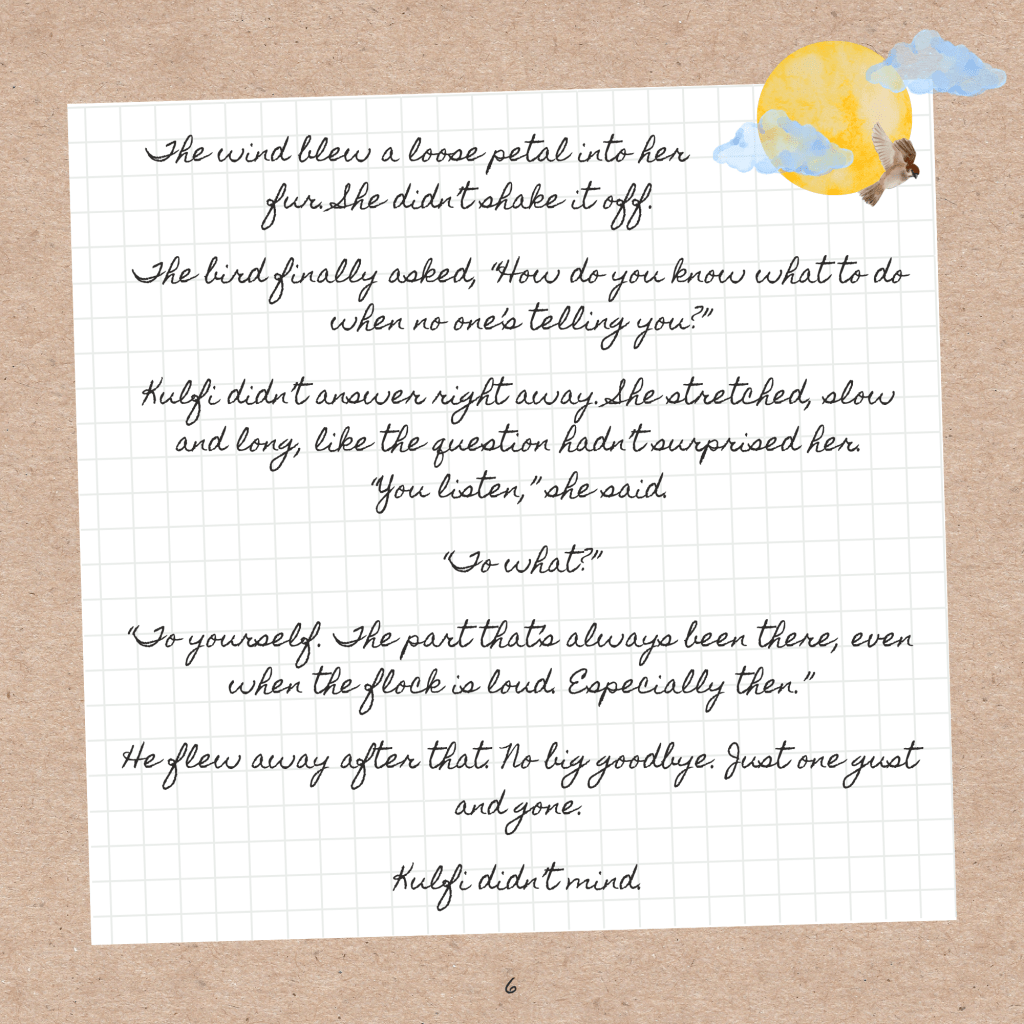 The wind blew a loose petal into her
fur. She didn't shake it off.
The bird finally asked, "How do you know what to do
when no one's telling you?"
Kulfi didn't answer right away. She stretched, slow
and long, like the question hadn't surprised her.
"You listen," she said.
"To what?"
"To yourself. The part that's always been there, even
when the flock is loud. Especially then."
He flew away after that. No big goodbye. Just one gust
and gone.
Kulfi didn't mind.
6